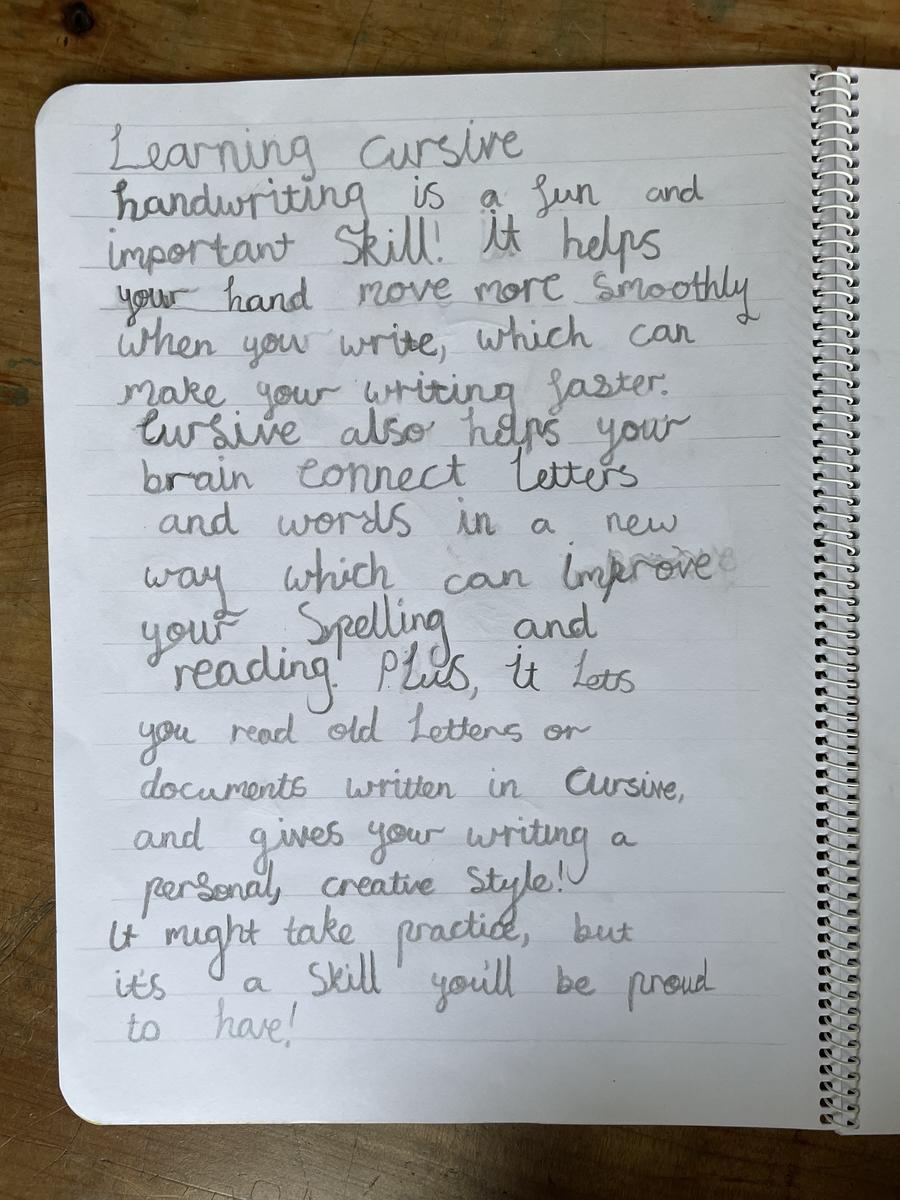 Learning cursive
handwriting is a fun and
important Skill! it helps
your hand move more smoothly
when you write, which can
make your writing faster.
Cursive also helps your
brain connect letters
and words in a new
way which can improve
your Spelling and
reading. Plus, it lets
you read old letters or
documents written in Cursive,
and gives your writing a
personal, creative Style!
it might take practice, but
it's a Skill you'll be proud
to have!